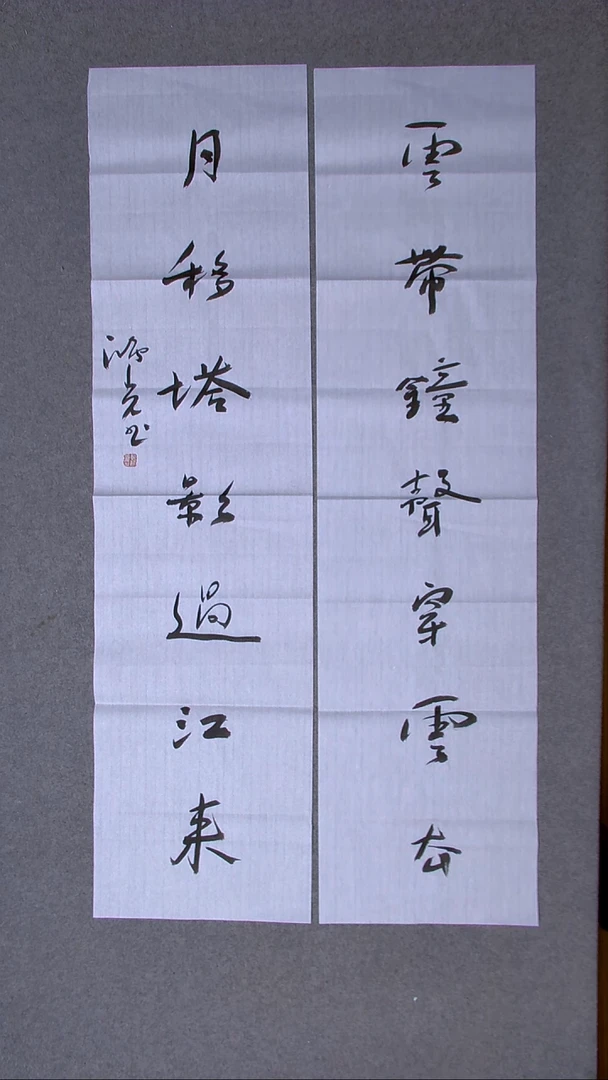 雲帶鐘聲穿雲去
月移塔影過江來
光书